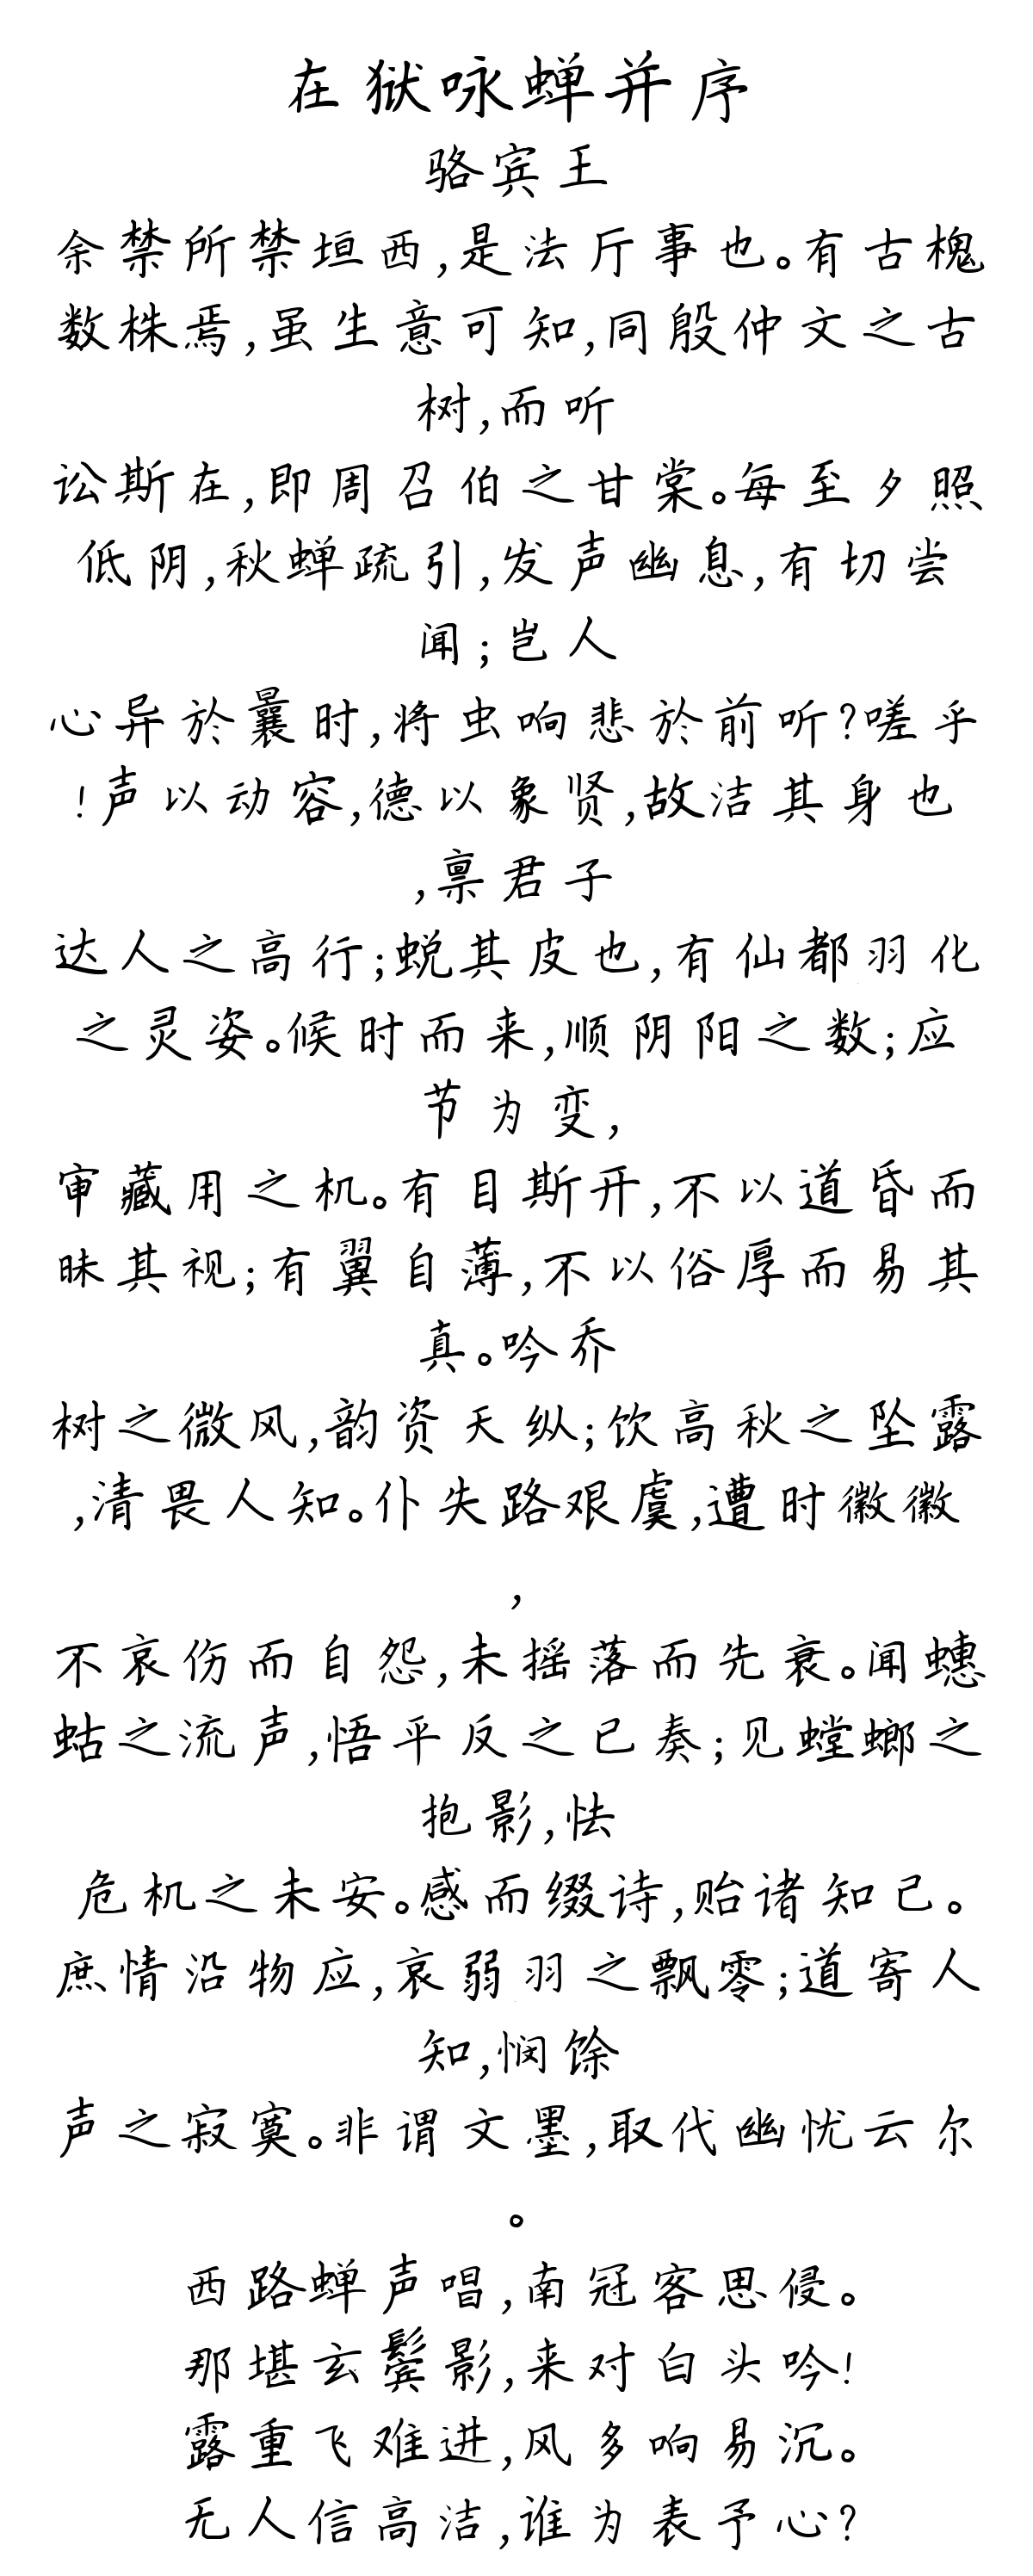 在狱咏蝉并序
骆宾王
余禁所禁垣西,是法厅事也。有古槐
数株焉,虽生意可知,同殷仲文之古
树,而听
讼斯在,即周召伯之甘棠。每至夕照
低阴,秋蝉疏引,发声幽息,有切尝
闻;岂人
心异於曩时,将虫响悲於前听?嗟乎
!声以动容,德以象贤,故洁其身也
,禀君子
达人之高行;蜕其皮也,有仙都羽化
之灵姿。候时而来,顺阴阳之数;应
节为变,
审藏用之机。有目斯开,不以道昏而
昧其视;有翼自薄,不以俗厚而易其
真。吟乔
树之微风,韵资天纵;饮高秋之坠露
,清畏人知。仆失路艰虞,遭时徽徽
,
不哀伤而自怨,未摇落而先衰。闻蟪
蛄之流声,悟平反之已奏;见螳螂之
抱影,怯
危机之未安。感而缀诗,贻诸知己。
庶情沿物应,哀弱羽之飘零;道寄人
知,悯馀
声之寂寞。非谓文墨,取代幽忧云尔
。
西路蝉声唱,南冠客思侵。
那堪玄鬓影,来对白头吟!
露重飞难进,风多响易沉。
无人信高洁,谁为表予心?